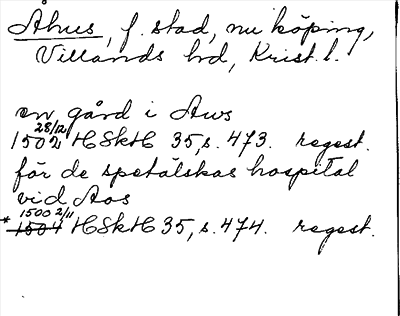 Åhus, f. stad, nu köping,
Villands hd, Krist. l.
en gård i Aws
28/12
1502 HSkH 35, s. 473. regest.
för de spetälskas hospital
vid Aos
1500 2/11
* 1504 HSkH 35, s. 474. regest.